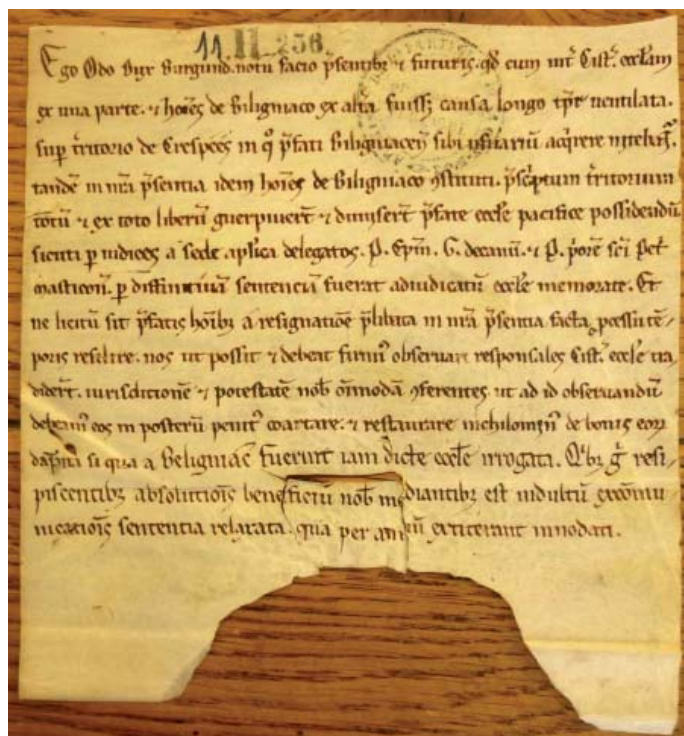 11 II 236
Ego Odo dux Burgund. notu facio p̄sentibȝ ⁊ futuris. qd̓ cum int̓ Cist̓. eccl̄am
ex una parte. ⁊ hoīes de Biligniaco ex alia fuiss̓ causa longo tp̄r uentilata.
sup̓ t̓ritorio de Crespees in q̊ p̄fati Biligniacen̄ sibi usuariū acq̓rere
tandē in nr̄a p̄sentia idem hoīes de Biligniaco ꝯstituti. p̄sc̓ptum t̓ritorium
totū ⁊ ex toto liberū guerpiuer̄t ⁊ dimiser̄t p̄fate eccl̄e pacifice possidendū
sicuti ꝑ iudices a sede apl̄ica delegatos. P. ep̄m. G. decanū. ⁊ P. p̓orē sc̄i Pet̓
masticon̄. ꝑ diffinitiuā sentenciā fuerat adiudicatū eccl̄e memorate. Et
ne licitū sit p̄fatis hoībȝ a resignatiōe p̄libata in nr̄a p̄sentia facta ꝓcessu tē-
poris resilire. nos ut possit ⁊ debeat firmit̓ obseruari responsales Cist̓. eccl̄e tra
dider̄t. iurisdictionē ⁊ potestatē nob̄ om̄modā ꝯferentes ut ad id obseruandū
debeam̓ eos in posterū penit̓ coartare. ⁊ restaurare nichilomin̓ de bonis eorꝝ
dāpna si qua a Beligniac̄ fuerint iam dicte eccl̄e irrogata. Qⁱbȝ g̊ resi-
piscentibȝ absolutiōis beneficiū nob̄ mediantibȝ est indultū excōmu
nicatiōis sententia relaxata. qua per annū extiterant innodati.